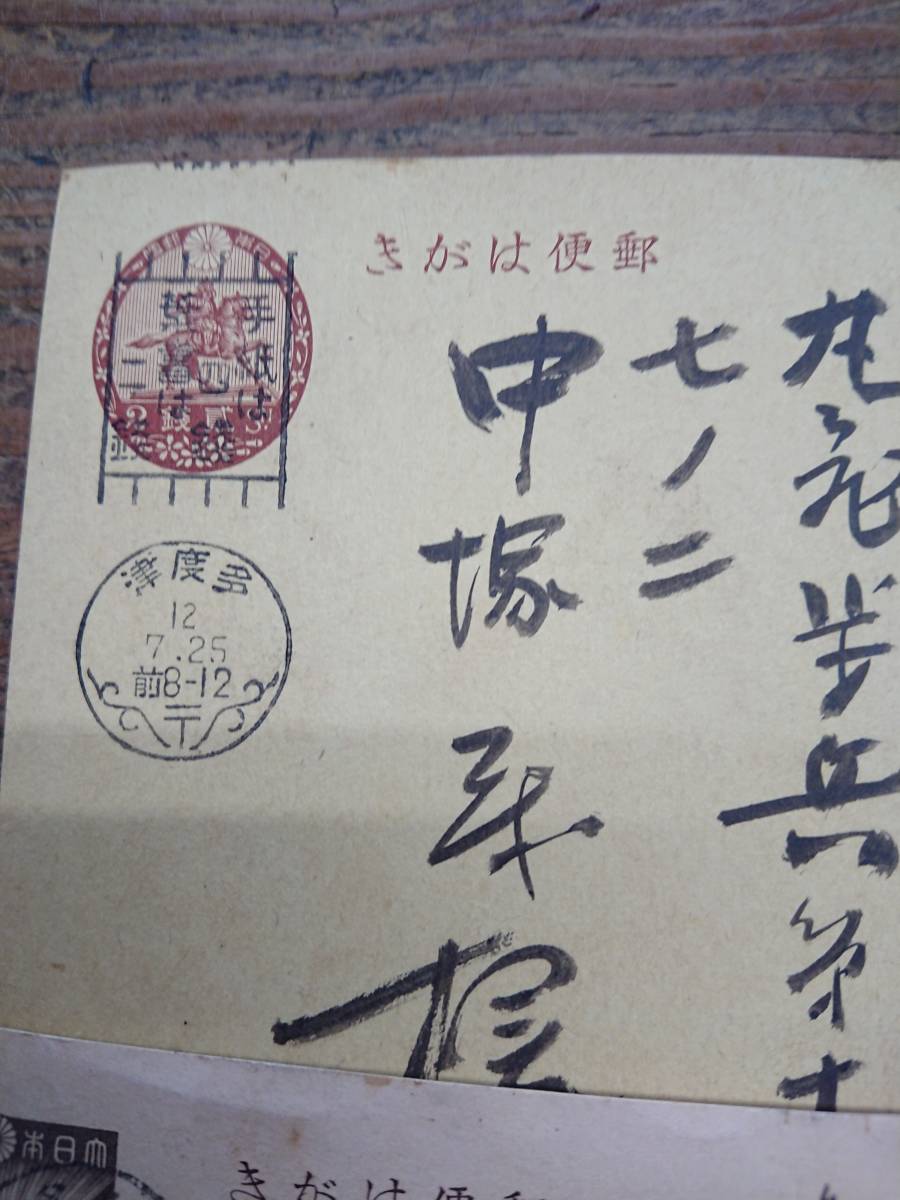 きがは便郵
丸亀歩兵第十
七ノ二
中塚
手紙は四銭
葉書は二銭
貳銭
多度津
12
7.25
前8-12
〒
大日本
きがは便郵